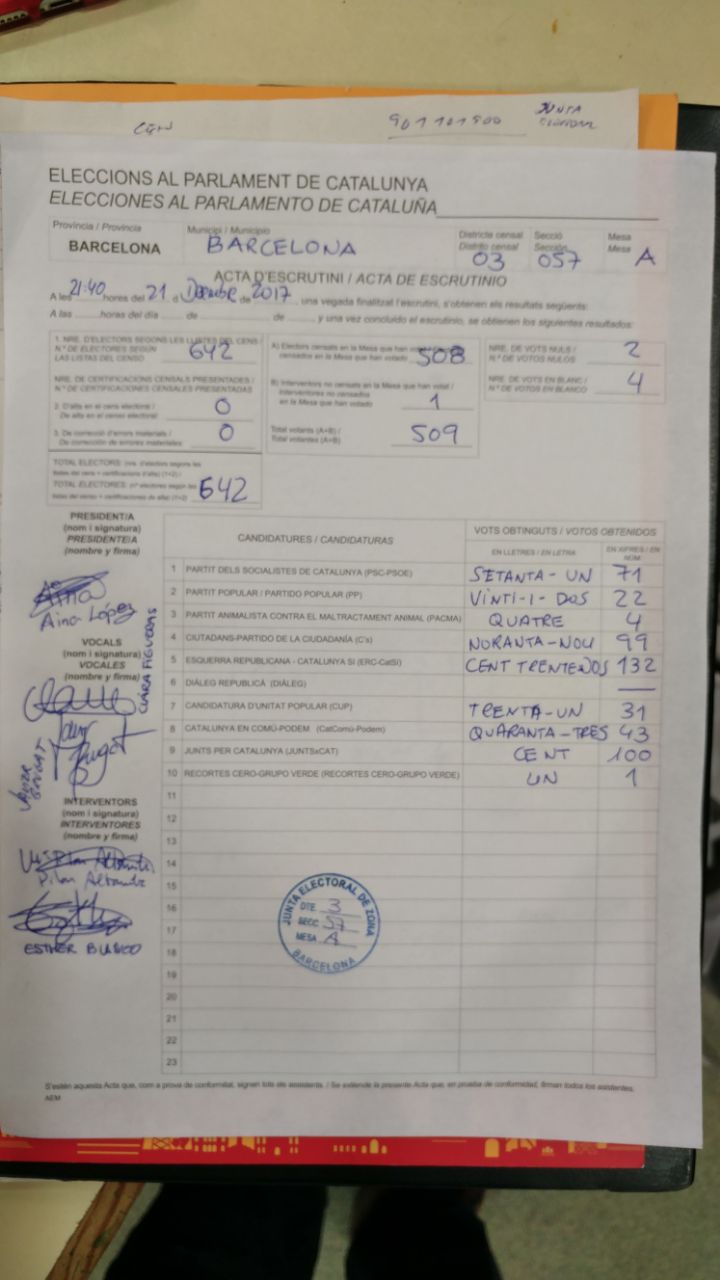 CEN
901 101 900
JUNTA
ELECTORAL
ELECCIONS AL PARLAMENT DE CATALUNYA
ELECCIONES AL PARLAMENTO DE CATALUÑA
Província / Provincia
BARCELONA
Municipi / Municipio
BARCELONA
Districte censal
Distrito censal
03
Secció
Sección
057
Mesa
Mesa
A
ACTA D'ESCRUTINI / ACTA DE ESCRUTINIO
A les 21:40 hores del 21 d Desembre de 2017, una vegada finalitzat l'escrutini, s'obtenen els resultats següents:
A las hores del día de de y una vez concluido el escrutinio, se obtienen los siguientes resultados:
1. NRE. D'ELECTORS SEGONS LES LLISTES DEL CENS /
N.º DE ELECTORES SEGÚN
LAS LISTAS DEL CENSO
642
NRE. DE CERTIFICACIONS CENSALS PRESENTADES /
N.º DE CERTIFICACIONES CENSALES PRESENTADAS
2. D'alta en el cens electoral /
De alta en el censo electoral
0
3. De correcció d'errors materials /
De corrección de errores materiales
0
TOTAL ELECTORS: (nre. d'electors segons les
llistes del cens + certificacions d'alta) (1+2) /
TOTAL ELECTORES: (nº electores según las
listas del censo + certificaciones de alta) (1+2)
642
A) Electors censats en la Mesa que han votat /
censados en la Mesa que han votado
508
B) Interventors no censats en la Mesa que han votat /
Interventores no censados
en la Mesa que han votado
1
Total votants (A+B) /
Total votantes (A+B)
509
NRE. DE VOTS NULS /
N.º DE VOTOS NULOS
2
NRE. DE VOTS EN BLANC /
N.º DE VOTOS EN BLANCO
4
PRESIDENT/A
(nom i signatura)
PRESIDENTE/A
(nombre y firma)
Aina López
VOCALS
(nom i signatura)
VOCALES
(nombre y firma)
CLÀRA FIGUERAS
INTERVENTORS
(nom i signatura)
INTERVENTORES
(nombre y firma)
Pilar
ESTHER BLASCO
CANDIDATURES / CANDIDATURAS
VOTS OBTINGUTS / VOTOS OBTENIDOS
EN LLETRES / EN LETRA
EN XIFRES / EN NÚM.
1 PARTIT DELS SOCIALISTES DE CATALUNYA (PSC-PSOE) SETANTA-UN 71
2 PARTIT POPULAR / PARTIDO POPULAR (PP) VINTI-I-DOS 22
3 PARTIT ANIMALISTA CONTRA EL MALTRACTAMENT ANIMAL (PACMA) QUATRE 4
4 CIUTADANS-PARTIDO DE LA CIUDADANÍA (C's) NORANTA-NOU 99
5 ESQUERRA REPUBLICANA - CATALUNYA SÍ (ERC-CatSí) CENT TRENTENOS 132
6 DIÀLEG REPUBLICÀ (DIÀLEG) —
7 CANDIDATURA D'UNITAT POPULAR (CUP) TRENTA-UN 31
8 CATALUNYA EN COMÚ-PODEM (CatComú-Podem) QUARANTA-TRES 43
9 JUNTS PER CATALUNYA (JUNTSxCAT) CENT 100
10 RECORTES CERO-GRUPO VERDE (RECORTES CERO-GRUPO VERDE) UN 1
11
12
13
14
15
16
17
18
19
20
21
22
23
JUNTA ELECTORAL DE ZONA
DTE. 3
SECC. 57
MESA A
BARCELONA
S'estén aquesta Acta que, com a prova de conformitat, signen tots els assistents. / Se extiende la presente Acta que, en prueba de conformidad, firman todos los asistentes.
AEM